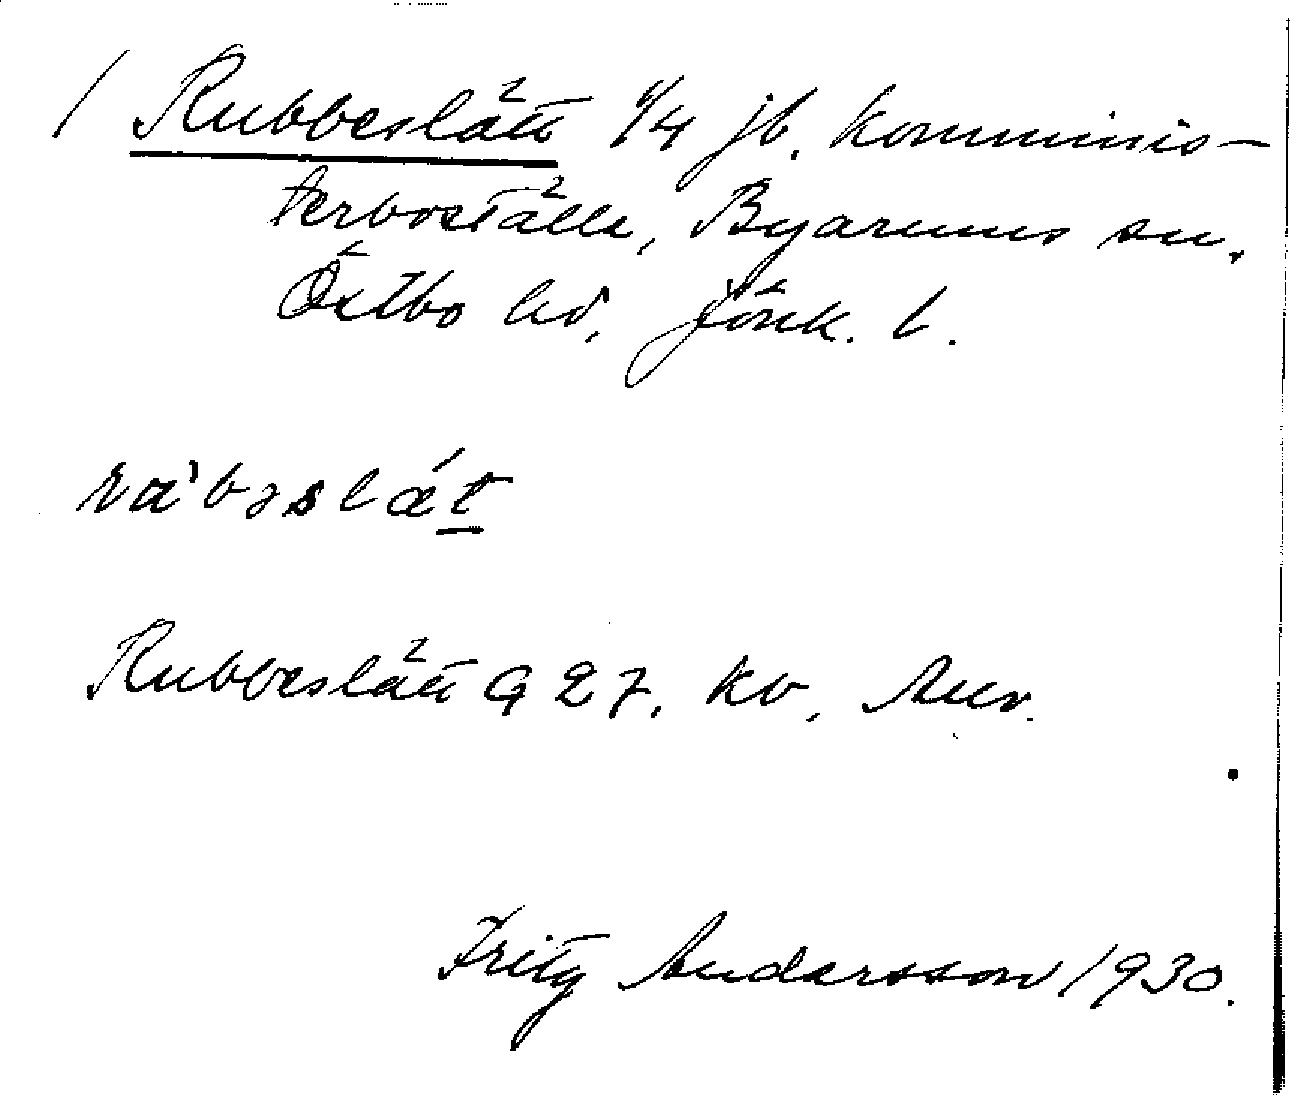 / Rubbeslätt 1/4 jb. komminis-
terboställe, Byarums sn.
Östbo hd, Jönk. l.
ra`bəslǽt
Rubbeslätt G 27. kv.
Fritz Andersson 1930.